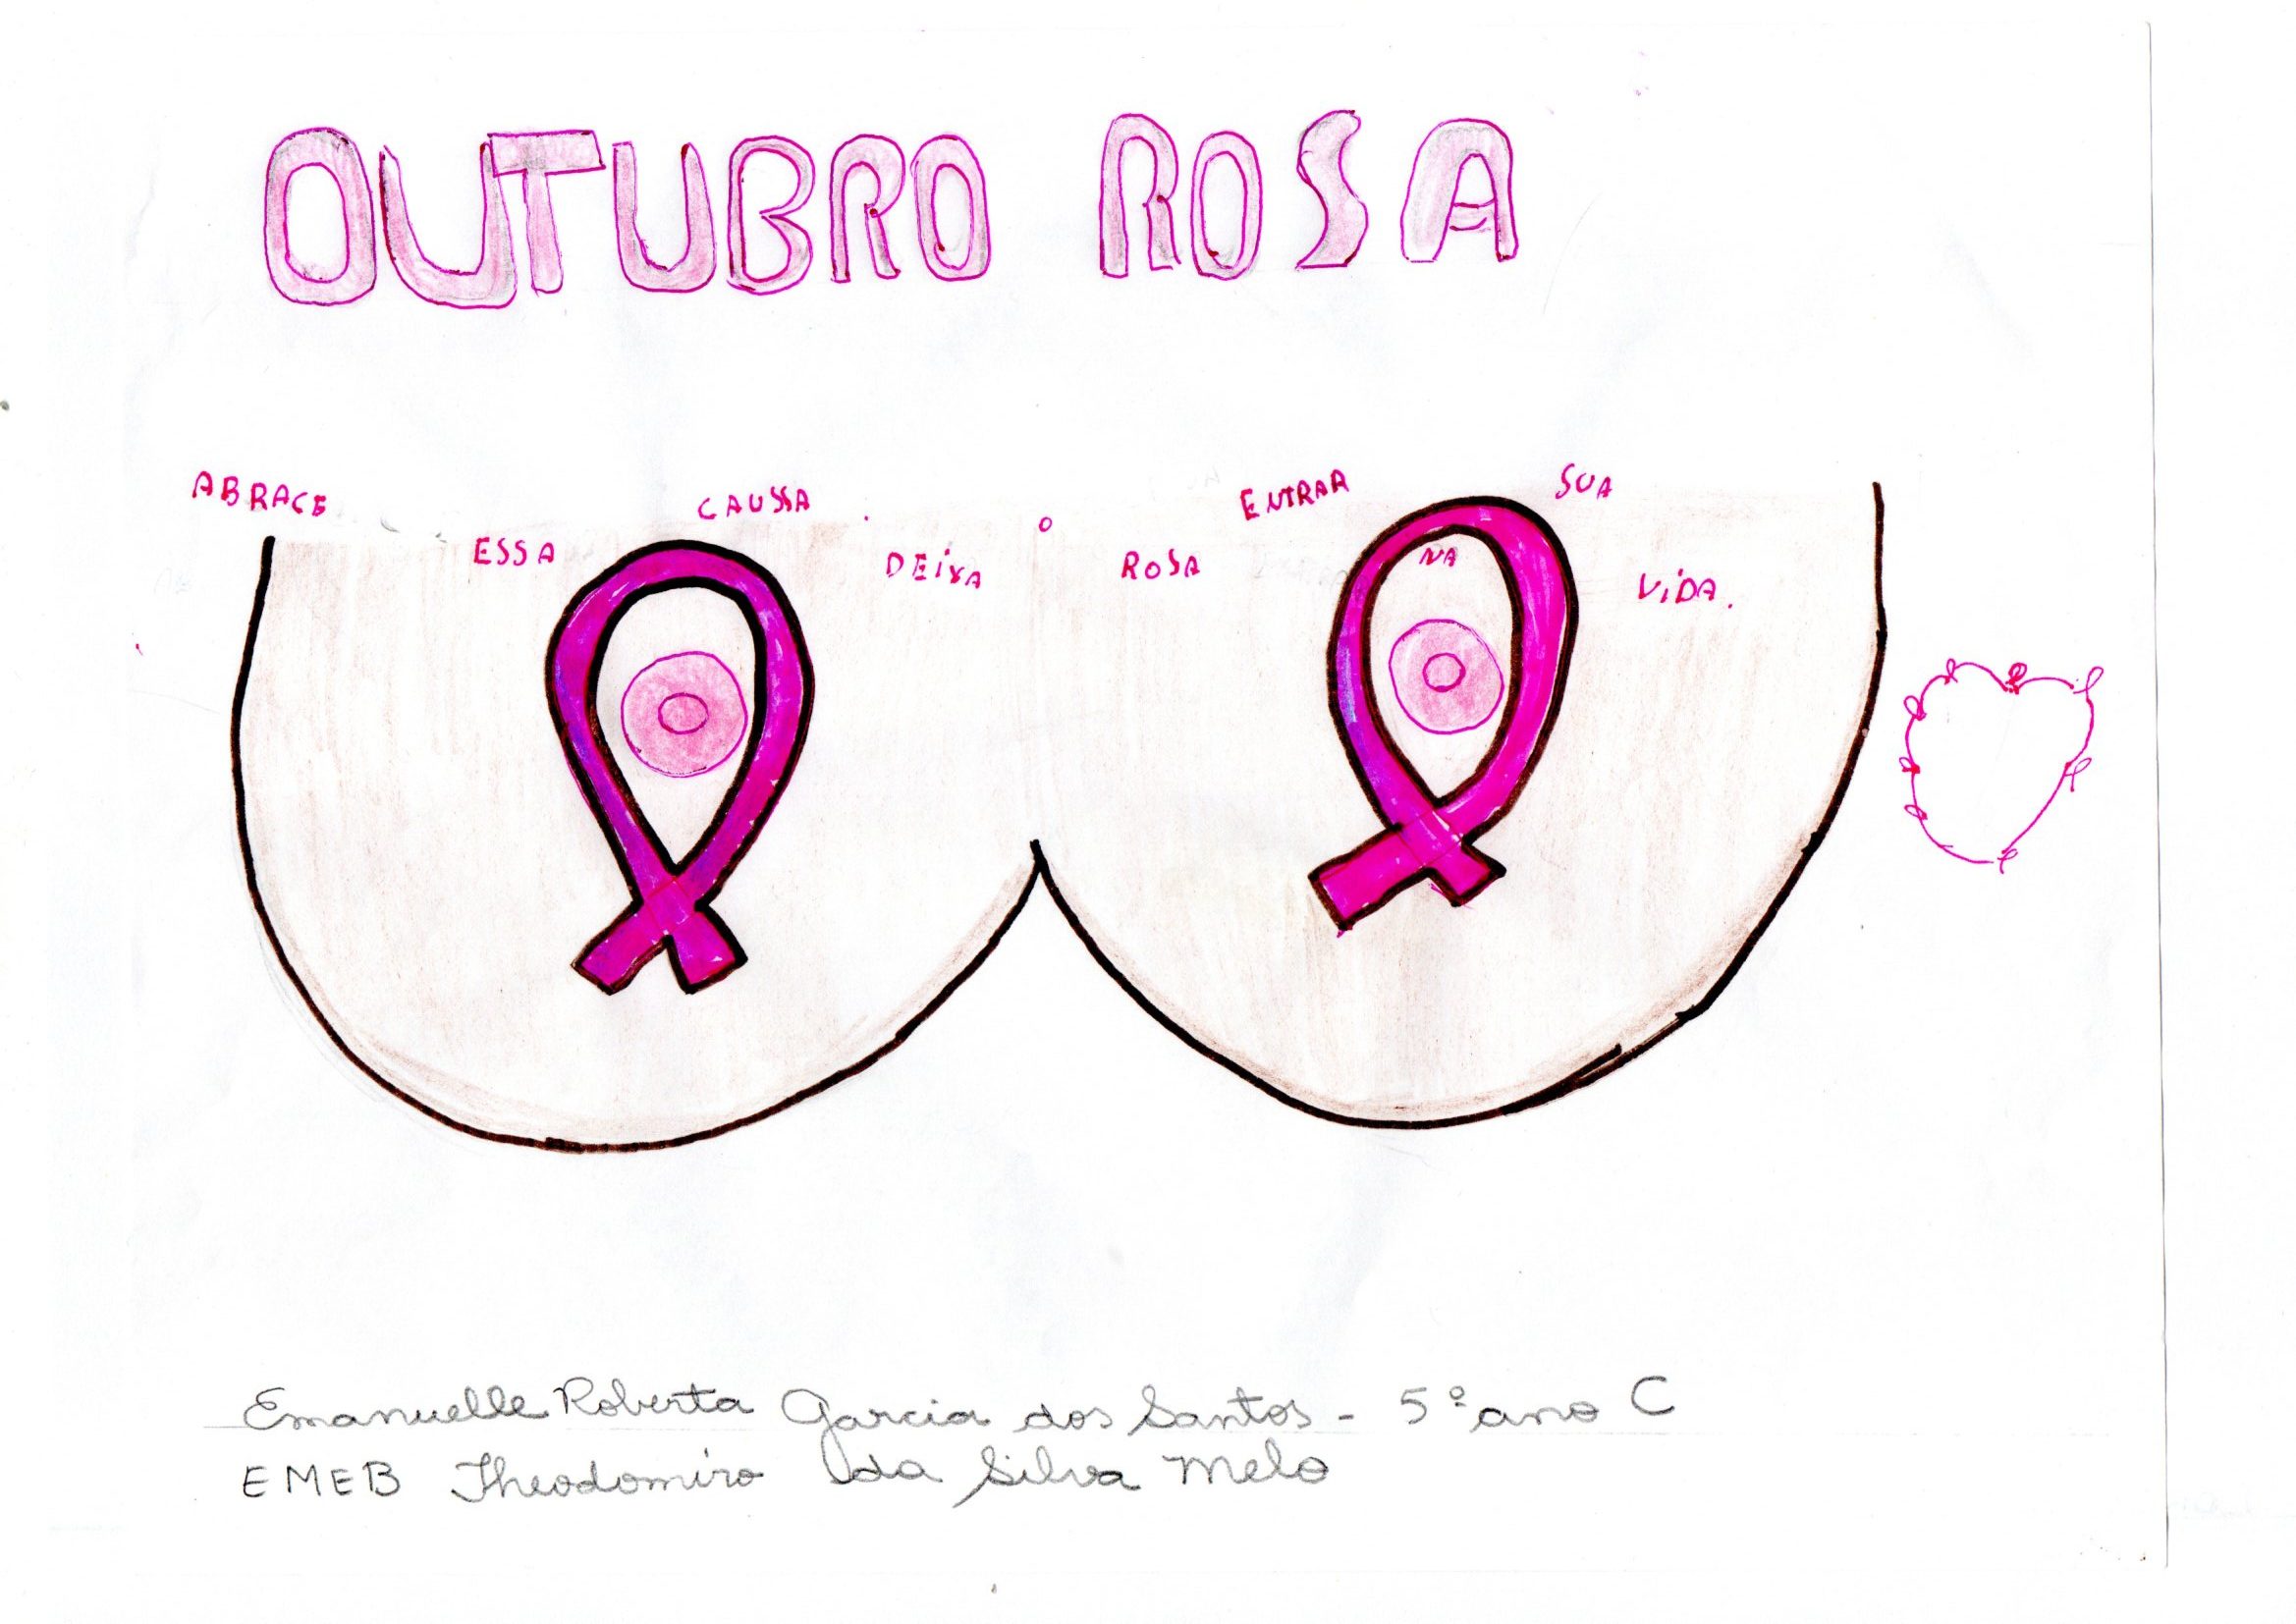 OUTUBRO ROSA
ABRACE ESSA CAUSSA. DEIXA O ROSA ENTRAR NA SUA VIDA.
Emanuelle Roberta Garcia dos Santos - 5º ano C
EMEB Theodomiro da Silva Melo